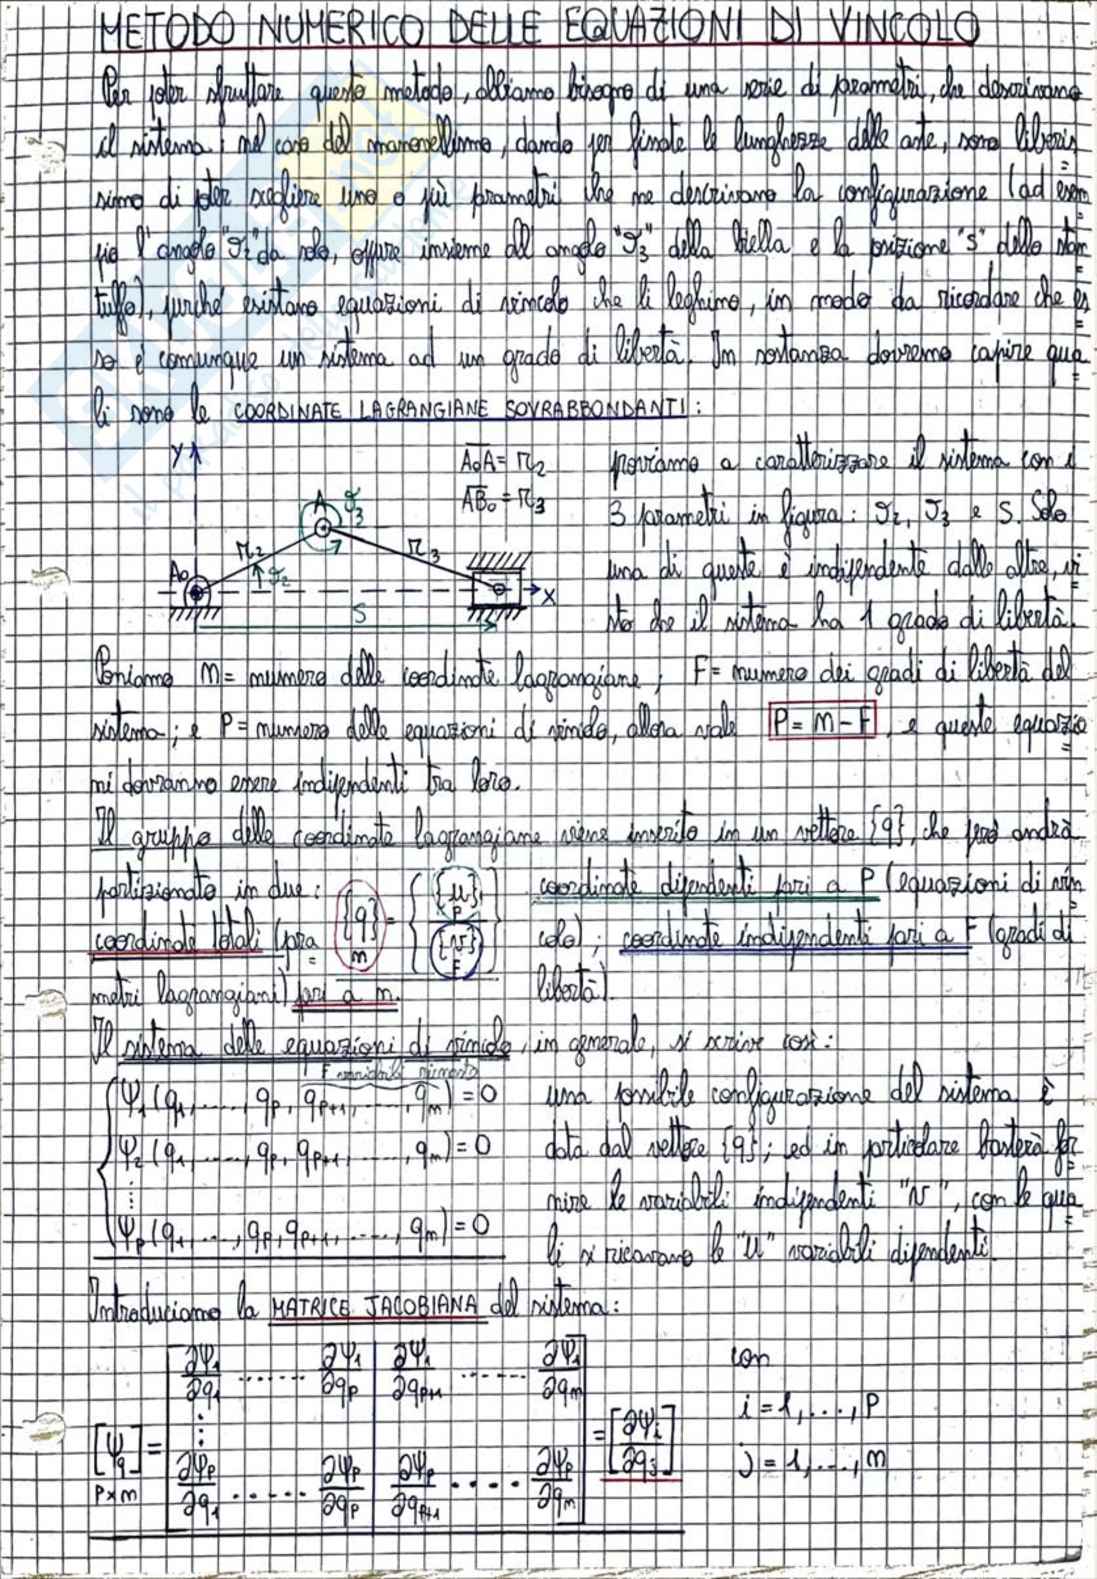 METODO NUMERICO DELLE EQUAZIONI DI VINCOLO
Per poter sfruttare questo metodo, abbiamo bisogno di una serie di parametri, che descrivano
il sistema: nel caso del manovellismo, dando per fissate le lunghezze delle aste, sono liberis
simo di poter scegliere uno o più parametri che me descrivano la configurazione (ad esem
pio l'angolo "ϑ₂" da solo, oppure insieme all'angolo "ϑ₃" della biella e la posizione "s" dello stan
tuffo), purché esistano equazioni di vincolo che li leghino, in modo da ricordare che es
so è comunque un sistema ad un grado di libertà. In sostanza dovremo capire qua
li sono le COORDINATE LAGRANGIANE SOVRABBONDANTI:
Y
A₀A = r₂
AB₀ = r₃
A
ϑ₃
r₂
r₃
A₀
ϑ₂
X
S
proviamo a caratterizzare il sistema con i
3 parametri in figura: ϑ₂, ϑ₃ e S. Solo
una di queste è indipendente dalle altre, vi
sto che il sistema ha 1 grado di libertà.
Poniamo m = numero delle coordinate lagrangiane; F = numero dei gradi di libertà del
sistema; e P = numero delle equazioni di vincolo, allora vale P = m - F, e queste equazio
ni dovranno essere indipendenti tra loro.
Il gruppo delle coordinate lagrangiane viene inserito in un vettore {q}, che però andrà
partizionato in due:
coordinate totali (para
metri lagrangiani) pari a m.
{q} m = { {u} P {v} F }
coordinate dipendenti pari a P (equazioni di vin
colo); coordinate indipendenti pari a F (gradi di
libertà).
Il sistema delle equazioni di vincolo, in generale, si scrive così:
F variabili
ψ₁(q₁, ......, qₚ, qₚ₊₁, ......, qₘ) = 0
ψ₂(q₁, ......, qₚ, qₚ₊₁, ......, qₘ) = 0
⋮
ψₚ(q₁, ..., qₚ, qₚ₊₁, ......, qₘ) = 0
una possibile configurazione del sistema è
data dal vettore {q}; ed in particolare basterà for
nire le variabili indipendenti "v", con le qua
li si ricavano le "u" variabili dipendenti.
Introduciamo la MATRICE JACOBIANA del sistema:
[ψq] P×m = [ ∂ψ₁/∂q₁ ...... ∂ψ₁/∂qₚ | ∂ψ₁/∂qₚ₊₁ ...... ∂ψ₁/∂qₘ
⋮
∂ψₚ/∂q₁ ...... ∂ψₚ/∂qₚ | ∂ψₚ/∂qₚ₊₁ .... ∂ψₚ/∂qₘ ] = [∂ψᵢ/∂qⱼ]
con
i = 1, ..., P
j = 1, ..., m